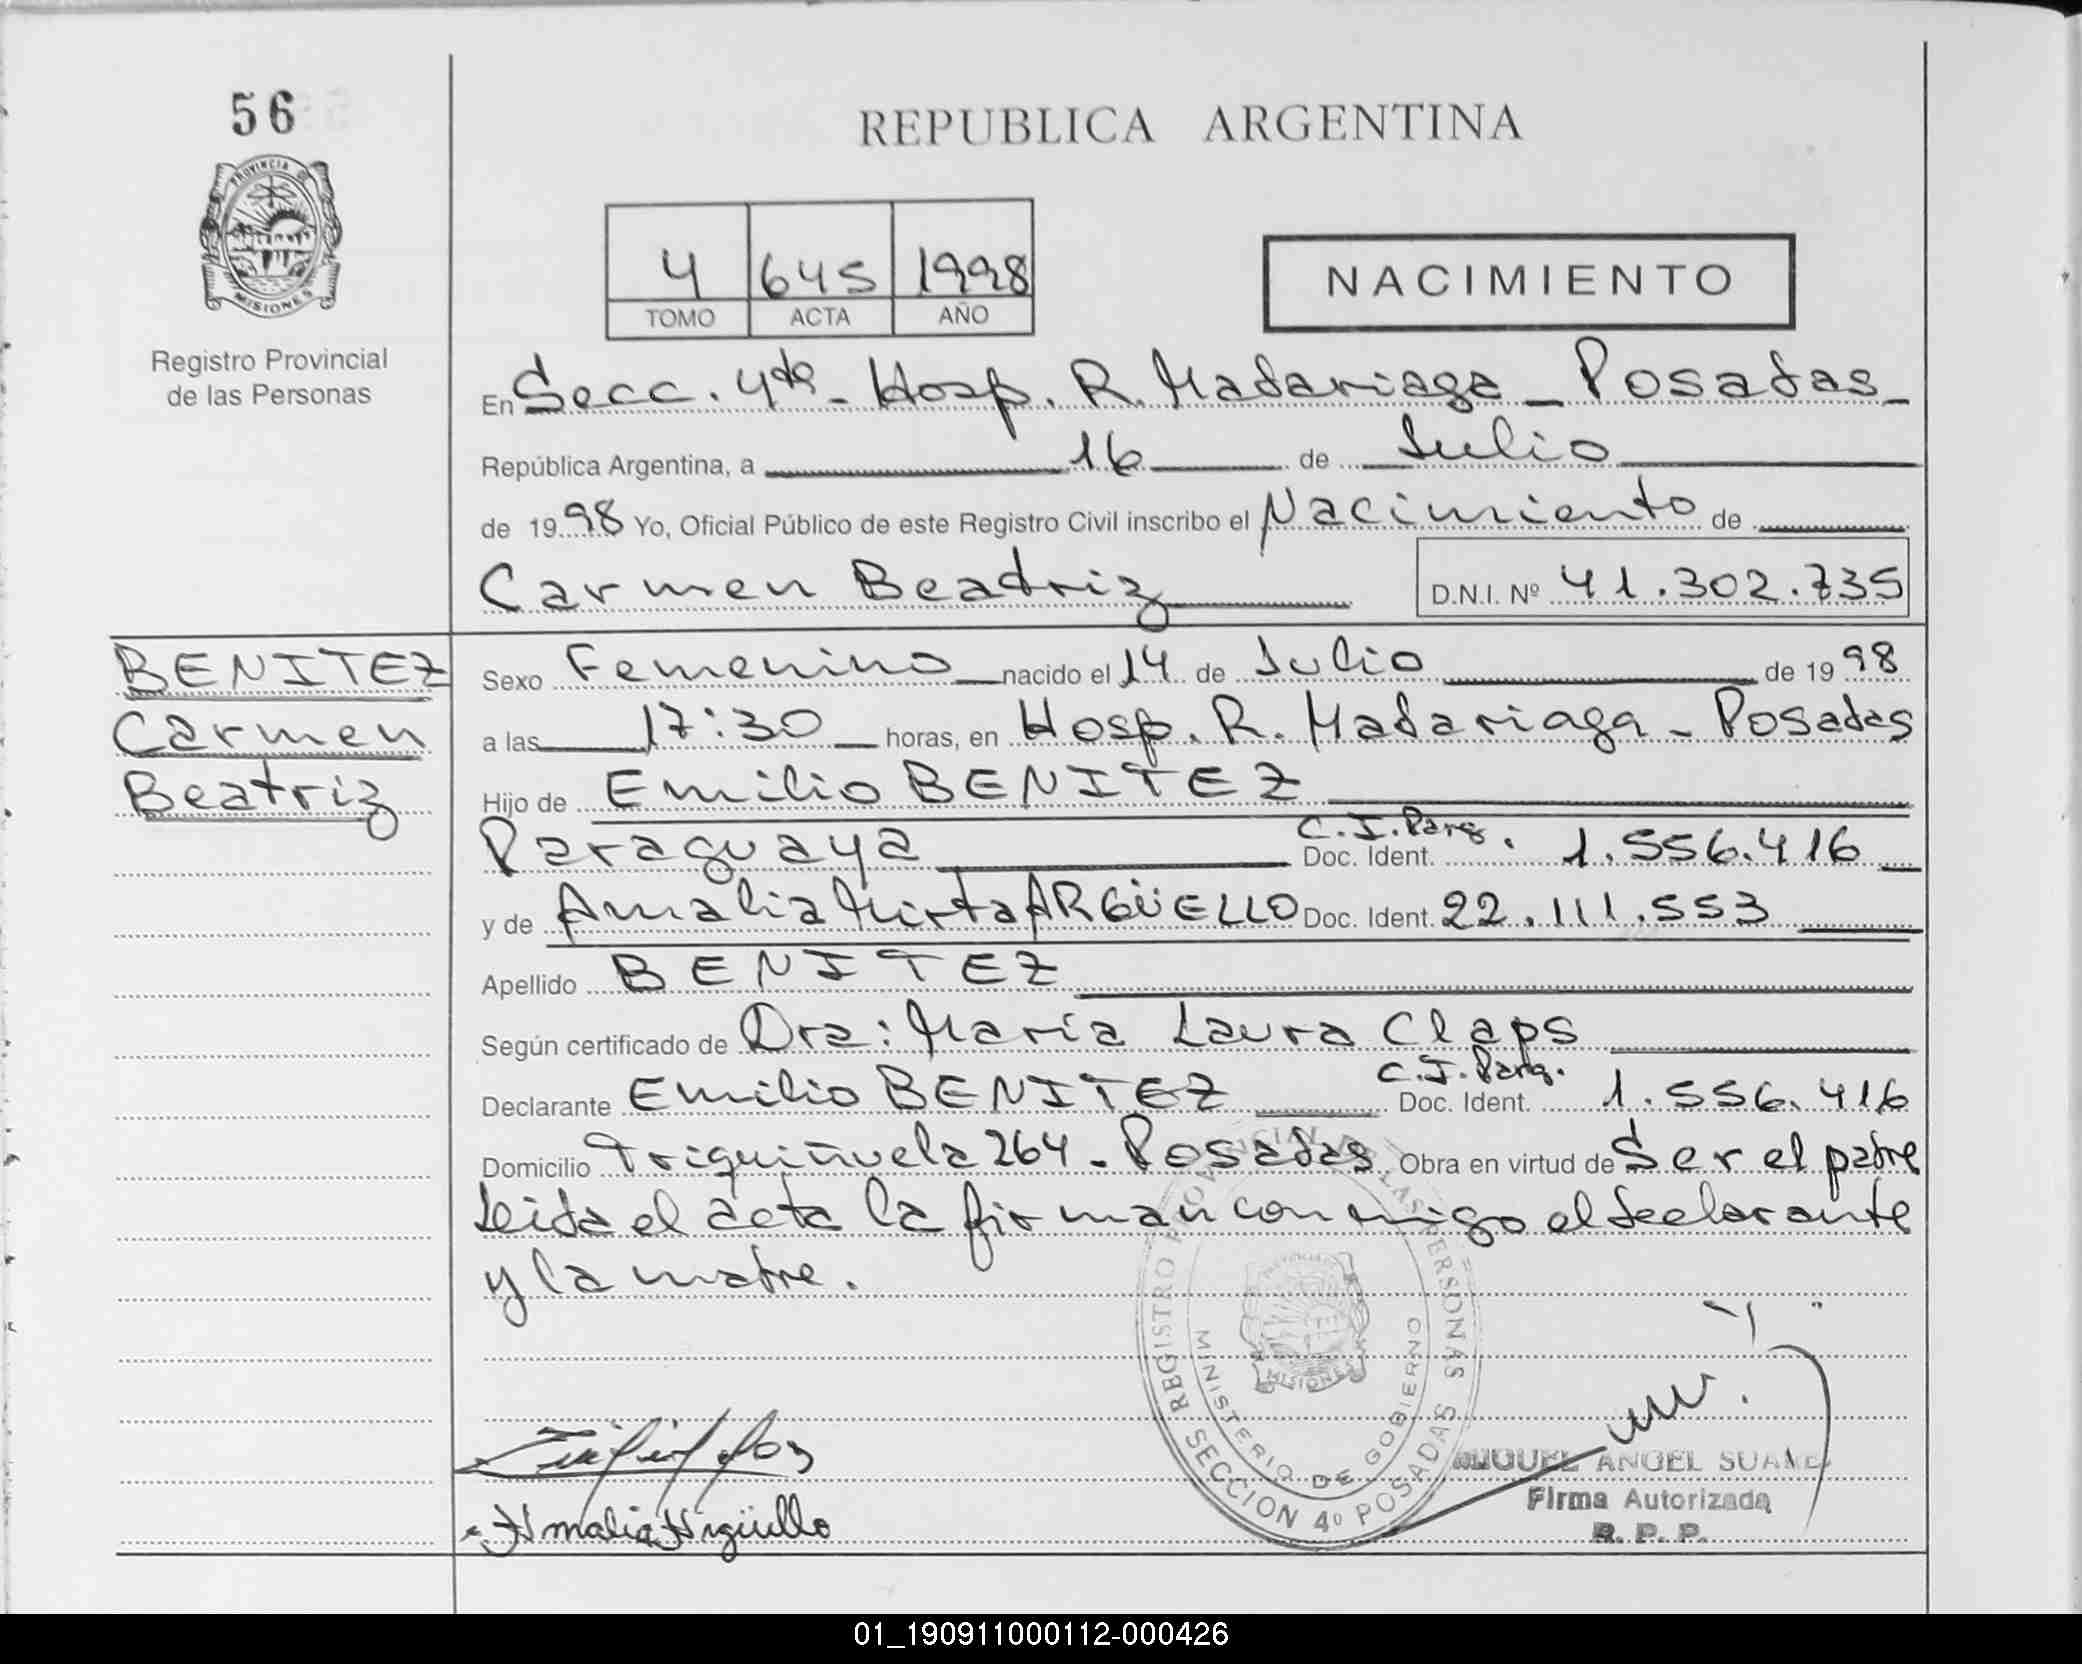 56
REPUBLICA ARGENTINA
PROVINCIA DE
MISIONES
Registro Provincial
de las Personas
4 645 1998
TOMO ACTA AÑO
NACIMIENTO
En Secc. 4ta - Hosp. R. Madariaga - Posadas -
República Argentina, a 16 de Julio
de 1998 Yo, Oficial Público de este Registro Civil inscribo el Nacimiento de
Carmen Beatriz D.N.I. Nº 41.302.735
BENITEZ
Carmen
Beatriz
Sexo Femenino nacido el 14 de Julio de 1998
a las 17:30 horas, en Hosp. R. Madariaga - Posadas
Hijo de Emilio BENITEZ
Paraguaya C.I. Parg. Doc. Ident. 1.556.416
y de Amalia Mirta ARGÜELLO Doc. Ident. 22.111.553
Apellido BENITEZ
Según certificado de Dra: María Laura Claps
Declarante Emilio BENITEZ C.I. Parg. Doc. Ident. 1.556.416
Domicilio Triquiñuela 264 - Posadas Obra en virtud de Ser el padre
Leida el acta la firman conmigo el declarante
y la madre.
REGISTRO PROVINCIAL DE LAS PERSONAS
MINISTERIO DE GOBIERNO
MISIONES
SECCION 4º POSADAS
Amalia Argüello
MIGUEL ANGEL SUAREZ
Firma Autorizada
R. P. P.
01_190911000112-000426